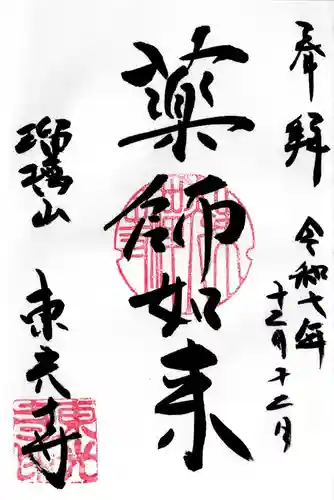 奉拝
令和七年
十二月十二月
薬師如来
瑠璃山
東光寺